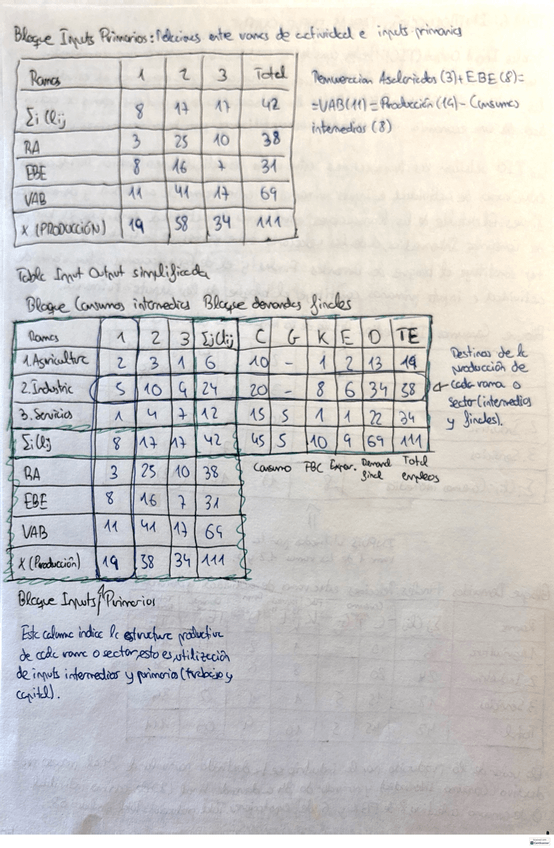 Bloque Inputs Primarios: Relaciones entre ramas de actividad e inputs primarios
Ramas 1 2 3 Total
Σi CIij 8 17 17 42
RA 3 25 10 38
EBE 8 16 7 31
VAB 11 41 17 69
X (PRODUCCIÓN) 19 58 34 111
Remuneración Asalariados (3) + EBE (8) =
= VAB (11) = Producción (19) - Consumos
intermedios (8)
Tabla Input Output simplificada
Bloque Consumos intermedios Bloque demandas finales
Ramas 1 2 3 Σj CIij C G K E D TE
1. Agricultura 2 3 1 6 10 - 1 2 13 19
2. Industria 5 10 9 24 20 - 8 6 34 58
3. Servicios 1 4 7 12 15 5 1 1 22 34
Σi CIij 8 17 17 42 45 5 10 9 69 111
RA 3 25 10 38
EBE 8 16 7 31
VAB 11 41 17 69
X (Producción) 19 38 34 111
Consumo FBC Expor. Demand final Total empleos
Destinos de la
producción de
cada rama o
sector (intermedios
y finales).
Bloque Inputs Primarios
Esta columna indica la estructura productiva
de cada rama o sector, esto es, utilización
de inputs intermedios y primarios (trabajo y
capital).